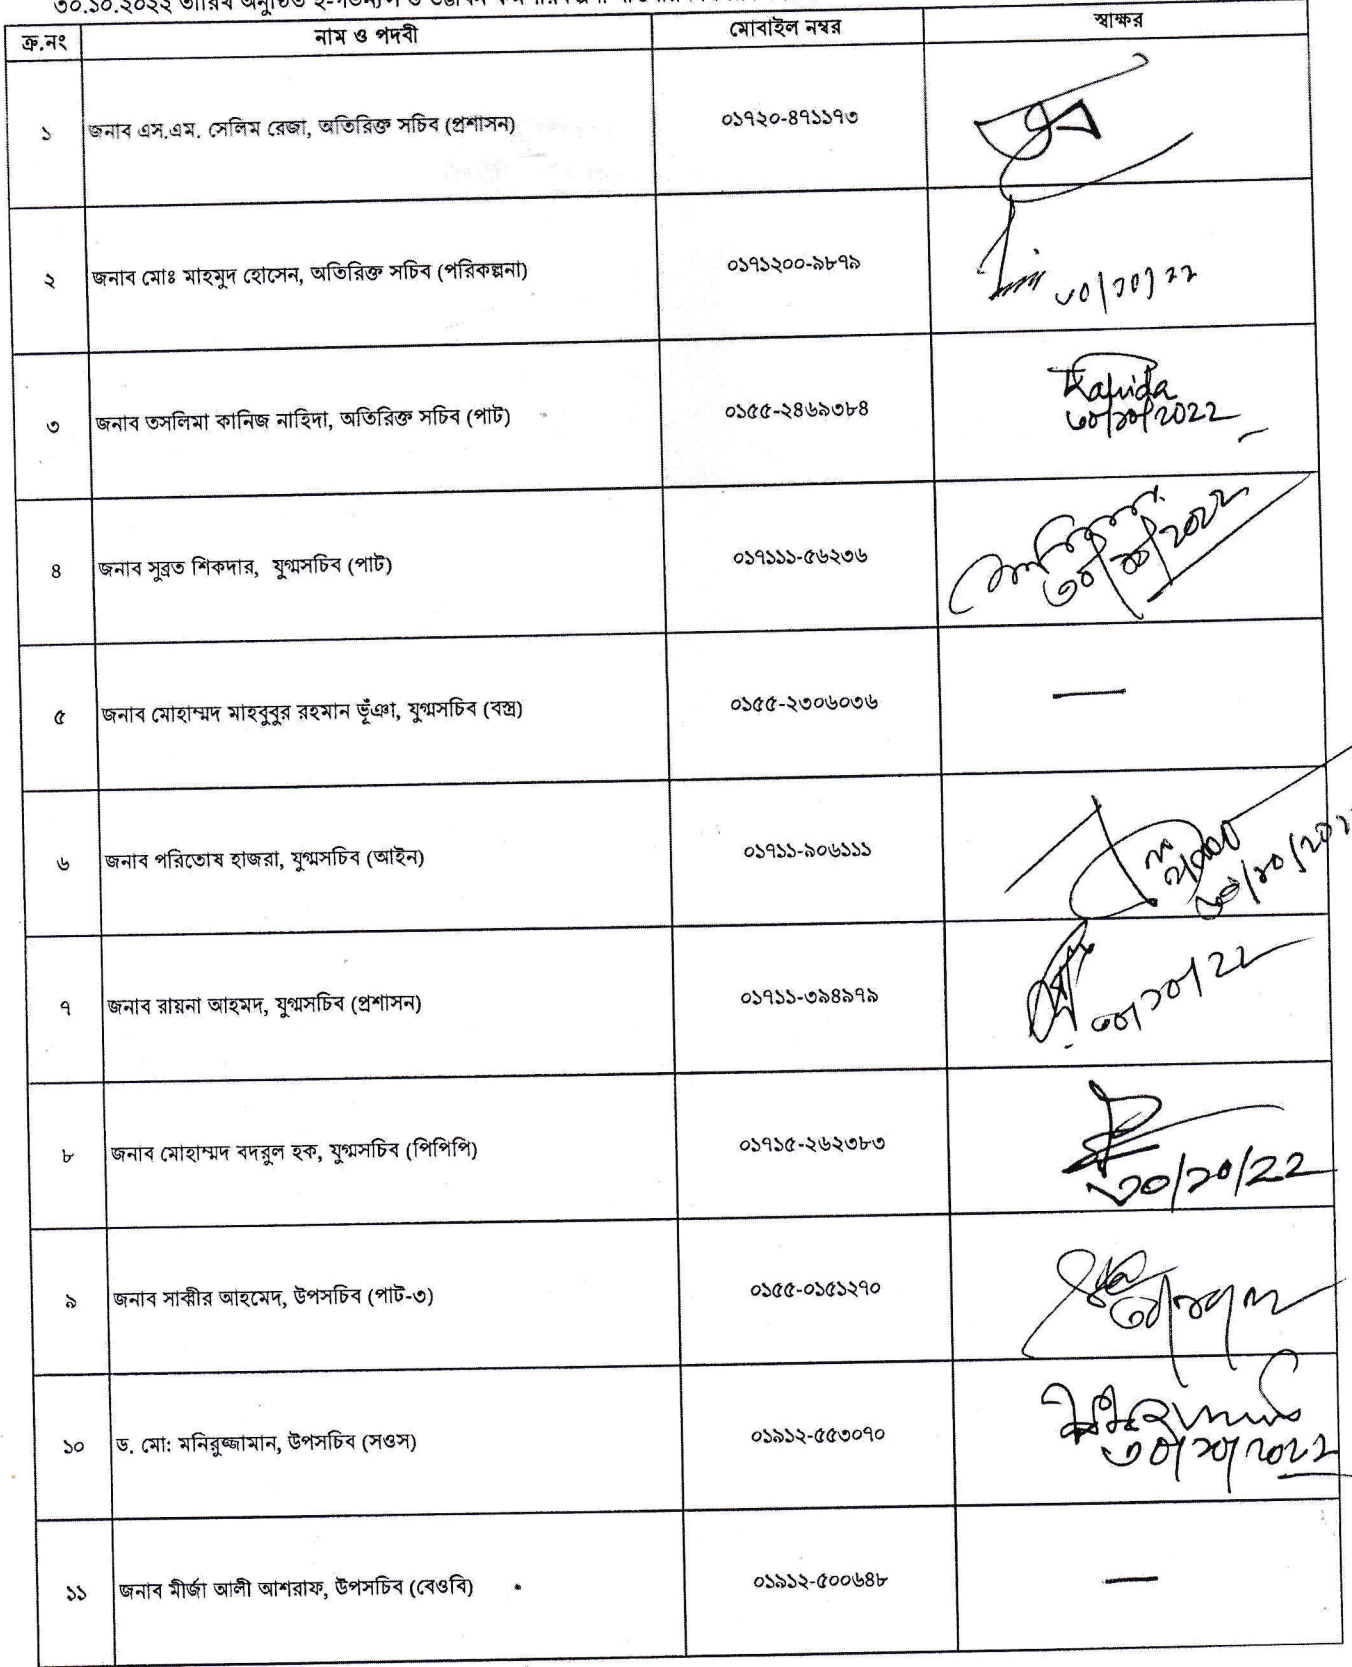 ৩০.১০.২০২২ তারিখ অনুষ্ঠিত ই-গভর্ন্যান্স ও উদ্ভাবন কর্মপরিকল্পনা
ক্র.নং নাম ও পদবী মোবাইল নম্বর স্বাক্ষর
১ জনাব এস.এম. সেলিম রেজা, অতিরিক্ত সচিব (প্রশাসন) ০১৭২০-৪৭১১৭৩
২ জনাব মোঃ মাহমুদ হোসেন, অতিরিক্ত সচিব (পরিকল্পনা) ০১৭১২০০-৯৮৭৯ ৩০/১০/২২
৩ জনাব তসলিমা কানিজ নাহিদা, অতিরিক্ত সচিব (পাট) ০১৫৫-২৪৬৯৩৮৪ Nahida
৩০/১০/2022
৪ জনাব সুব্রত শিকদার, যুগ্মসচিব (পাট) ০১৭১১১-৫৬২৩৬ ৩০/১০/২০২২
৫ জনাব মোহাম্মদ মাহবুবুর রহমান ভূঁঞা, যুগ্মসচিব (বস্ত্র) ০১৫৫-২৩০৬০৩৬ —
৬ জনাব পরিতোষ হাজরা, যুগ্মসচিব (আইন) ০১৭১১-৯০৬১১১
৭ জনাব রায়না আহমদ, যুগ্মসচিব (প্রশাসন) ০১৭১১-৩৯৪৯৭৯ ৩০/১০/২২
৮ জনাব মোহাম্মদ বদরুল হক, যুগ্মসচিব (পিপিপি) ০১৭১৫-২৬২৩৮৩ ৩০/১০/22
৯ জনাব সাব্বীর আহমেদ, উপসচিব (পাট-৩) ০১৫৫-০১৫১২৭০
১০ ড. মো: মনিরুজ্জামান, উপসচিব (সওস) ০১৯১২-৫৫৩০৭০ ৩০/১০/২০২২
১১ জনাব মীর্জা আলী আশরাফ, উপসচিব (বেওবি) ০১৯১২-৫০০৬৪৮ —